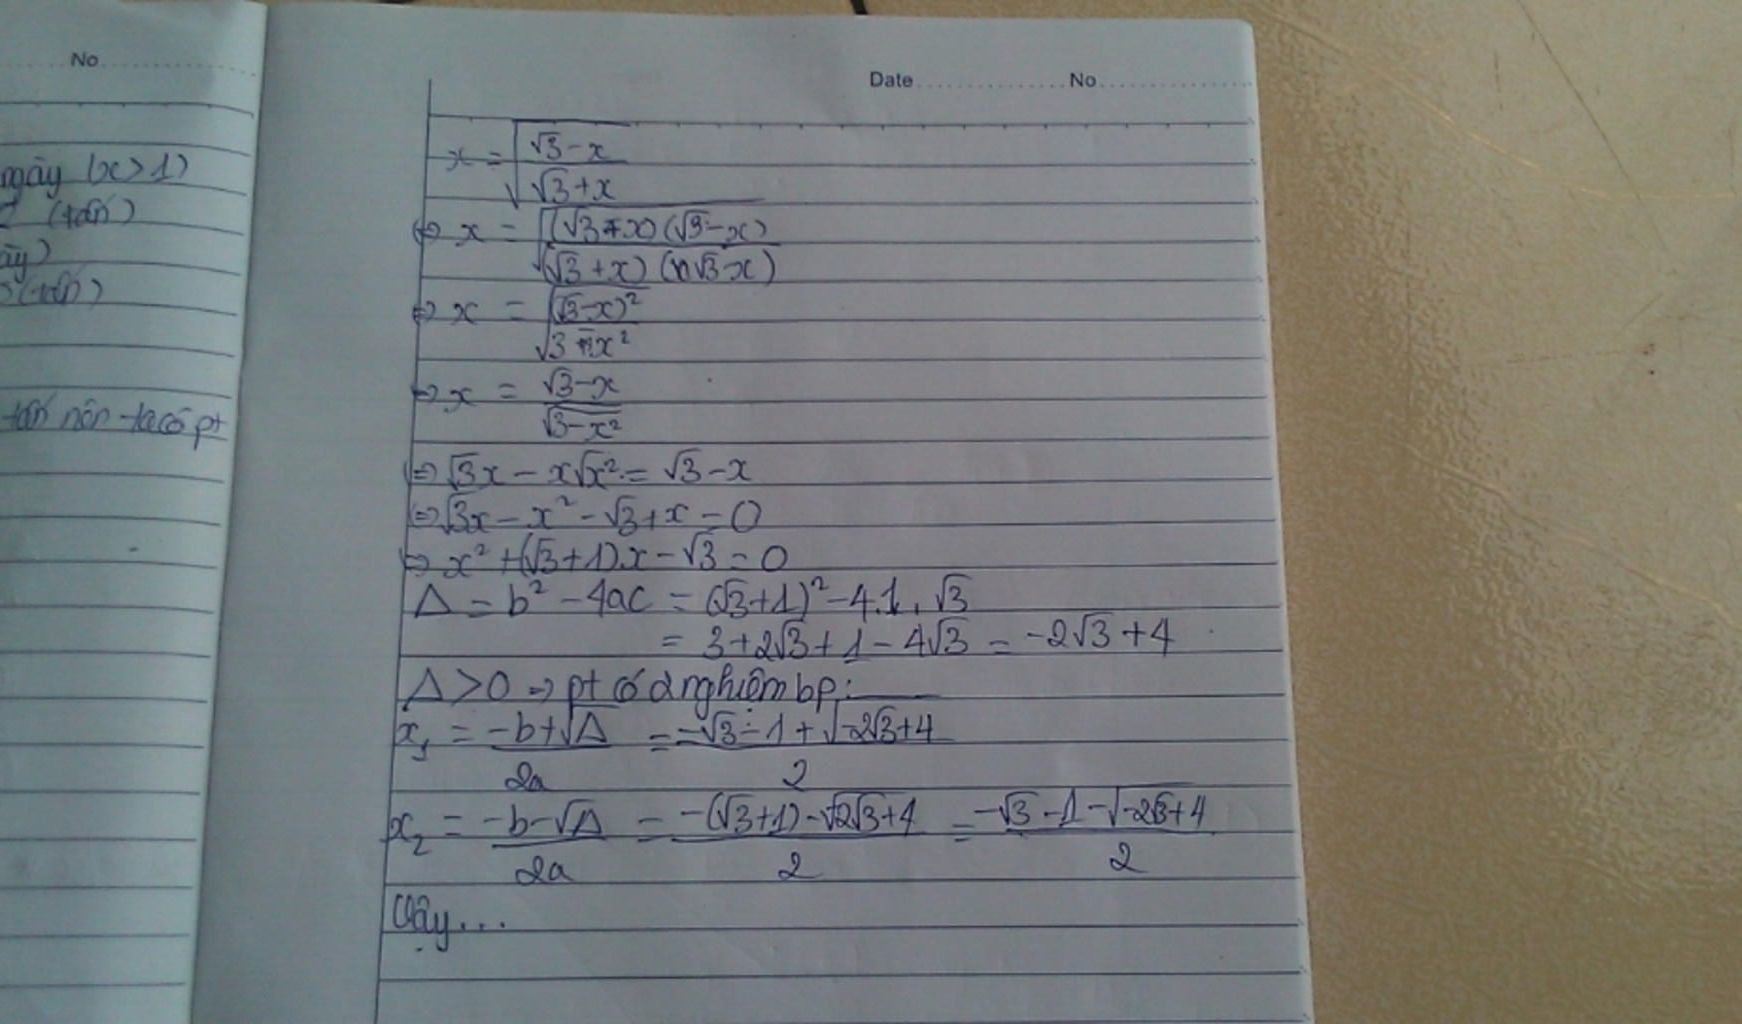 No
ngày (x>1)
2 (tấn)
ày)
(tấn)
tấn nên ta có pt
Date No
x = √((√3-x)/(√3+x))
⇔ x = √((√3-x)(√3-x)/(√3+x)(√3-x))
⇔ x = √((√3-x)²/(3-x²))
⇔ x = (√3-x)/√(3-x²)
⇔ √3x - x√x² = √3-x
⇔ √3x - x² - √3+x = 0
⇔ x² + (√3+1).x - √3 = 0
Δ = b² - 4ac = (√3+1)² - 4.1.√3
= 3+2√3+1-4√3 = -2√3+4
Δ>0 ⇒ pt có 2 nghiệm bp:
x₁ = (-b+√Δ)/2a = (-√3-1+√(-2√3+4))/2
x₂ = (-b-√Δ)/2a = (-(√3+1)-√(-2√3+4))/2 = (-√3-1-√(-2√3+4))/2
Vậy...